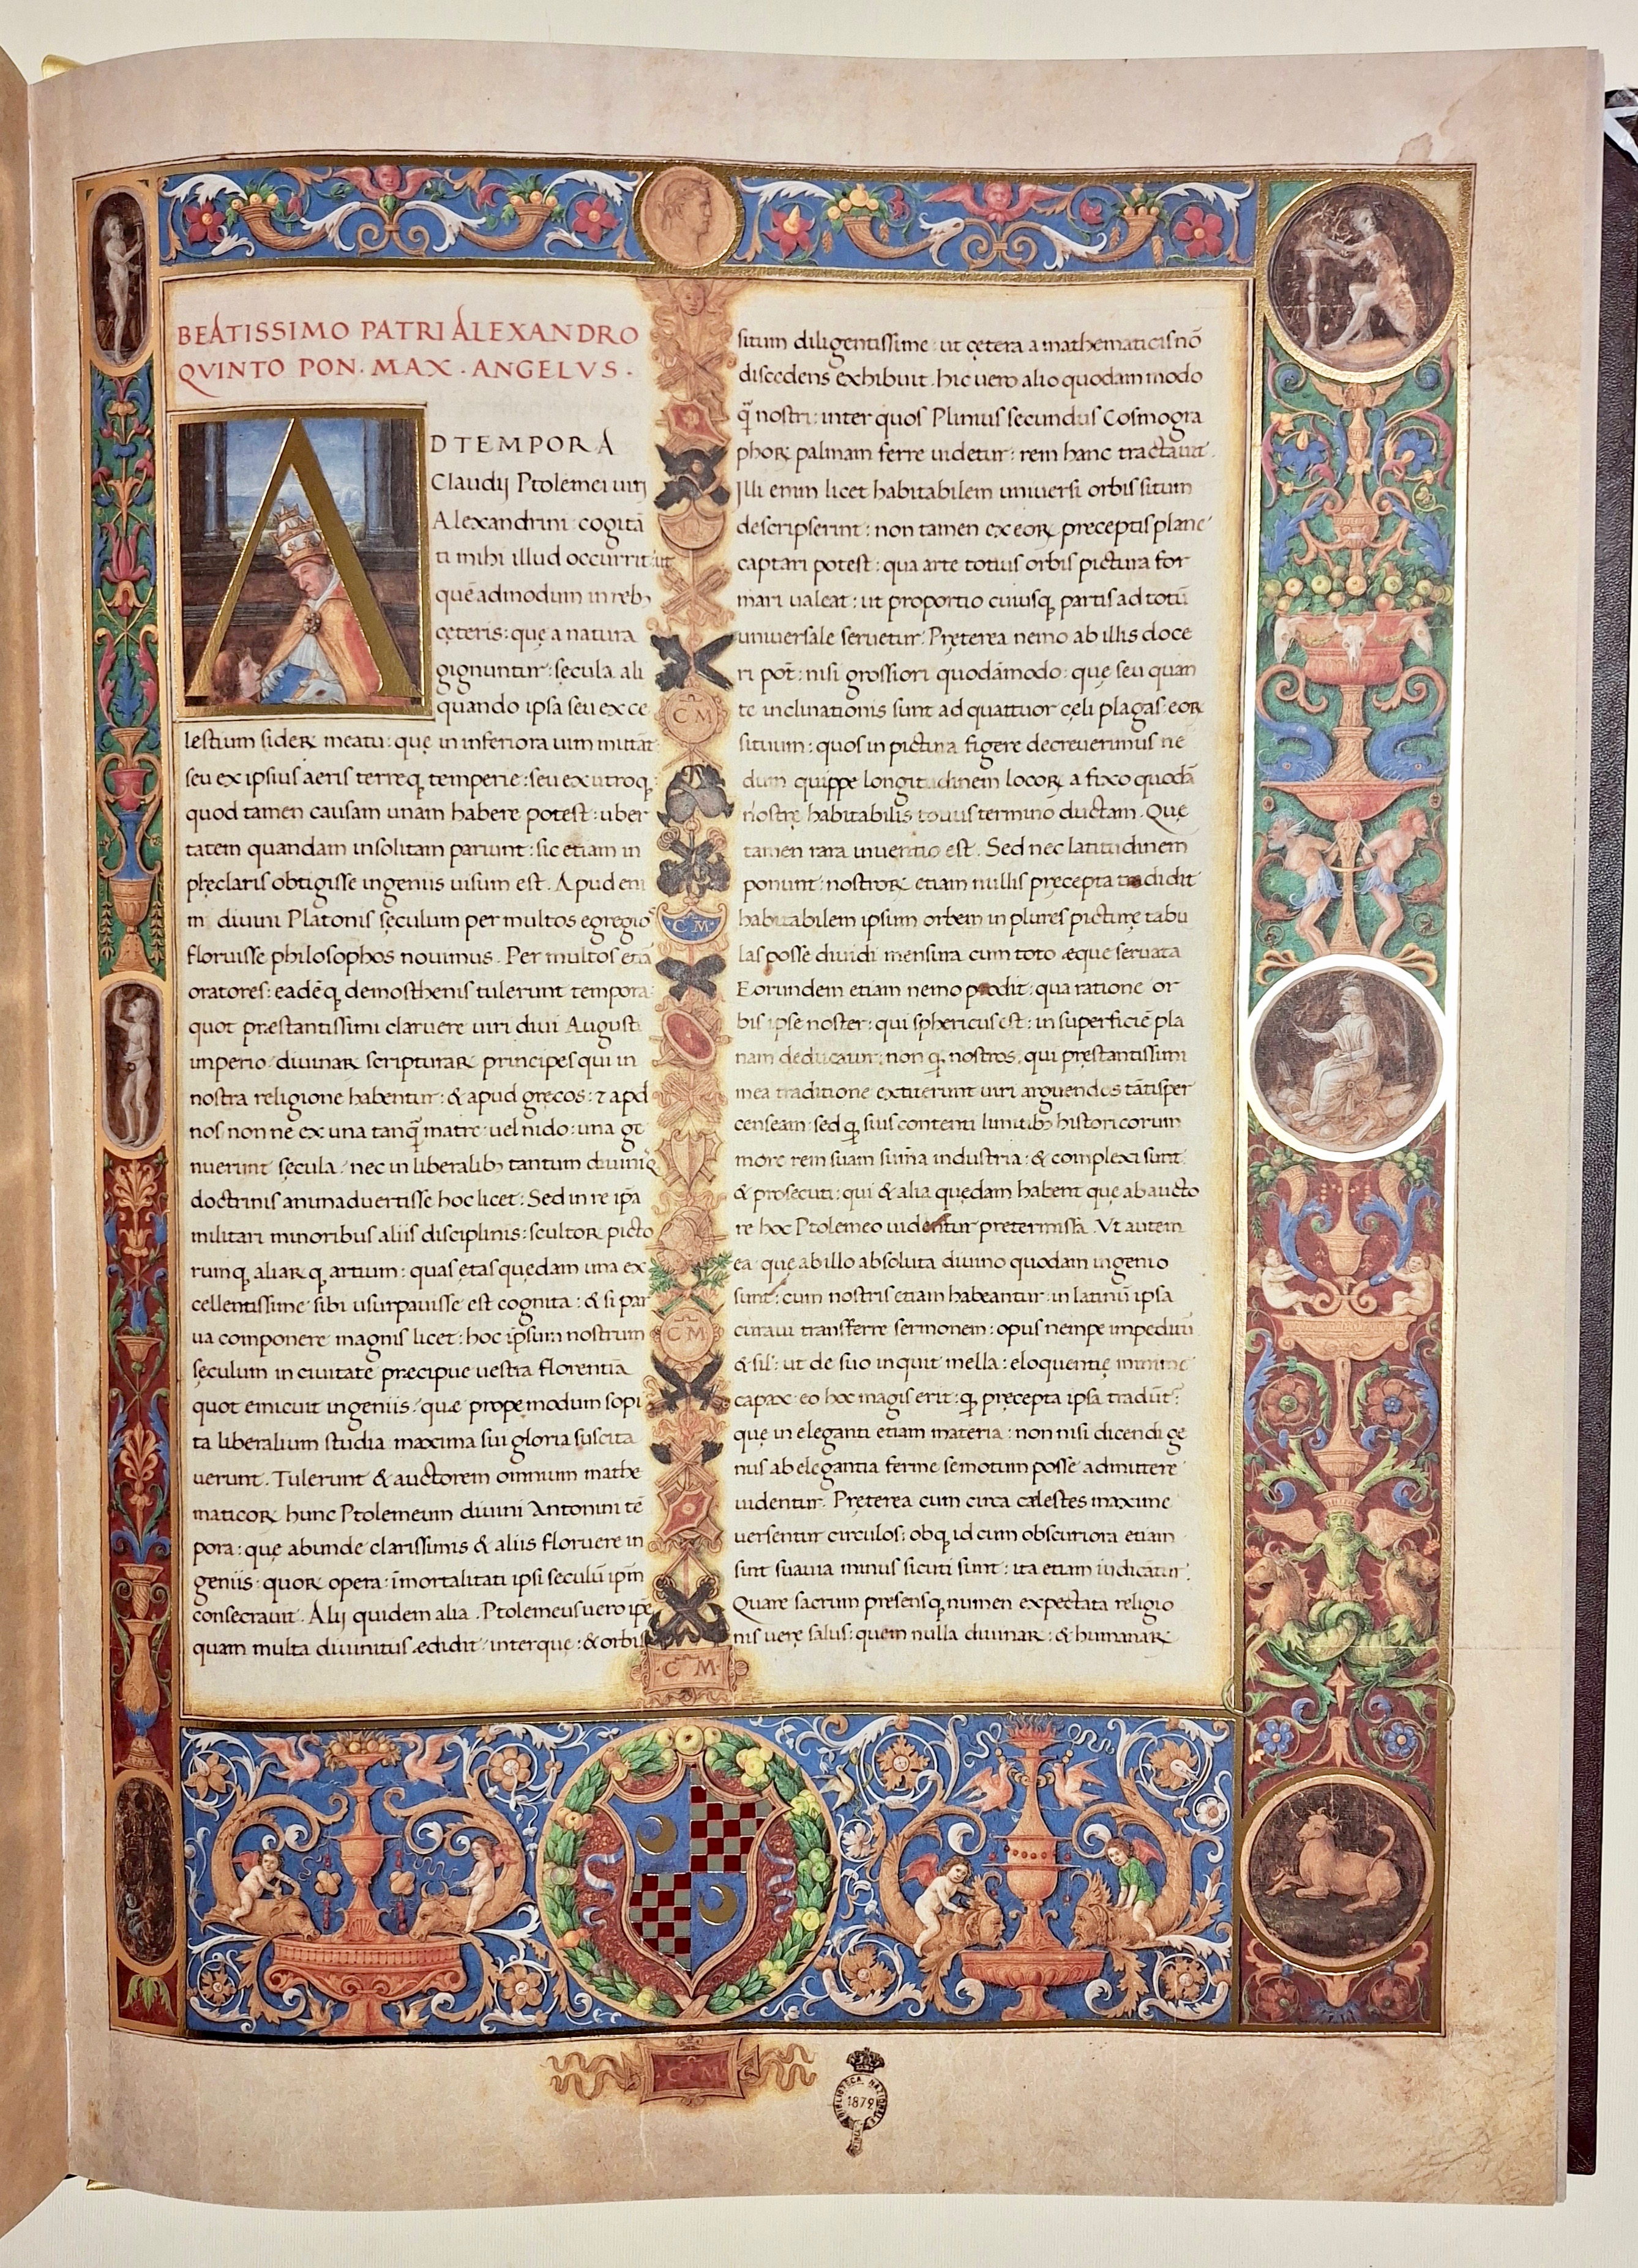 BEATISSIMO PATRI ALEXANDRO
QVINTO PON. MAX. ANGELVS.
A
D TEMPORA
Claudij Ptolemei uiri
Alexandrini cogitā
ti mihi illud occurrit: ut
quēadmodum in rebꝰ
cęteris: quę a natura
gignuntur: sęcula ali
quando ipsa seu ex cę
lestium sideꝝ meatu: quę in inferiora uim mittāt
seu ex ipsius aeris terręq; temperie: seu ex utroq;
quod tamen causam unam habere potest: uber
tatem quandam insolitam pariunt: sic etiam in
pręclaris obtigisse ingeniis uisum est. Apud eni
m diuini Platonis sęculum per multos egregios
floruisse philosophos nouimus. Per multos etiā
oratores: eadēq; demosthenis tulerunt tempora:
quot præstantissimi claruere uiri diui Augusti
imperio: diuinaꝝ scripturaꝝ principes qui in
nostra religione habentur: & apud gręcos: & apd
nos non ne ex una tanq̄ matre: uel nido: una ge
nuerunt sęcula: nec in liberalibꝰ tantum diuinisq;
doctrinis animaduertisse hoc licet: Sed in re ip̄a
militari minoribus aliis disciplinis: scultoꝝ picto
rumq; aliaꝝ q; artium: quas ętas quędam una ex
cellentissime sibi usurpauisse est cognita: & si par
ua componere magnis licet: hoc ipsum nostrum
sęculum in ciuitate præcipue uestra florentia
quot emicuit ingeniis: quæ propemodum sopi
ta liberalium studia maxima sui gloria suscita
uerunt. Tulerunt & auctorem omnium mathe
maticoꝝ hunc Ptolemeum diuini Antonini tē
pora: quę abunde clarissimis & aliis floruere in
geniis: quoꝝ opera: īmortalitati ipsi seculū ipm̄
consecrauit. Alij quidem alia. Ptolemeus uero ipe
quam multa diuinitus ædidit: inter quę: & orbis
C M
C M
C M
C M
situm diligentissime: ut cętera a mathematicis nō
discedens exhibuit. hic uero alio quodam modo
q̄ nostri: inter quos Plinius secundus Cosmogra
phoꝝ palmam ferre uidetur: rem hanc tractauit.
Illi enim licet habitabilem uniuersi orbis situm
descripserint: non tamen ex eoꝝ pręceptis plane
captari potest: qua arte totius orbis pictura for
mari ualeat: ut proportio cuiusq; partis ad totū
uniuersale seruetur. Pręterea nemo ab illis doce
ri pōt: nisi grossiori quodāmodo: quę seu quan
te inclinationis sunt ad quattuor cęli plagas: eoꝝ
situum: quos in pictura figere decreuerimus ne
dum quippe longitudinem locoꝝ a fixo quodā
nostrę habitabilis totius termino ductam. Quę
tamen rara inuentio est. Sed nec latitudinem
ponunt: nostroꝝ etiam nullis pręcepta tradidit
habitabilem ipsum orbem in plures picturę tabu
las posse diuidi mensura cum toto æque seruata
Eorundem etiam nemo prodit: qua ratione or
bis ipse noster: qui sphericus est: in superficiē pla
nam deducatur: non q; nostros, qui pręstantissimi
mea traditione extiterunt uiri arguendos tātisper
censeam: sed q; suis contenti limitibꝰ historicorum
more rem suam sum̄a industria: & complexi sunt:
& prosecuti: qui & alia quędam habent que ab aucto
re hoc Ptolemeo uidentur pretermissa. Vt autem
ea: quę ab illo absoluta diuino quodam ingenio
sunt: cum nostris etiam habeantur: in latinū ipsa
curaui transferre sermonem: opus nempe impeditū
& sil': ut de suo inquit mella: eloquentię minime
capax: eo hoc magis erit: q; pręcepta ipsa tradūt:
quę in eleganti etiam materia: non nisi dicendi ge
nus ab elegantia ferme semotum posse admittere
uidentur. Pręterea cum circa cælestes maxime
uersentur circulos: obq; id cum obscuriora etiam
sint suauia minus sicuti sunt: ita etiam iudicātur.
Quare sacrum presensq; numen expectata religio
nis uerę salus: quem nulla diuinaꝝ: & humanaꝝ
C M
BIBLIOTECA NAZIONALE
1872